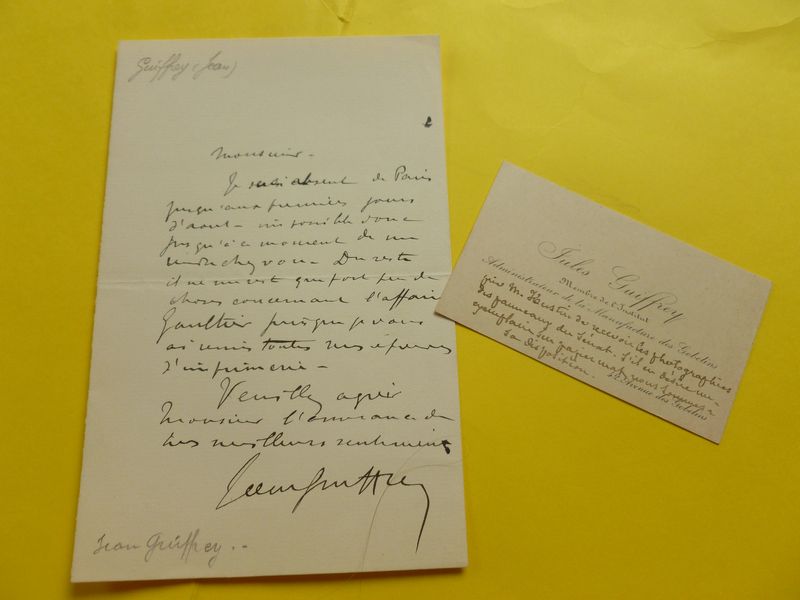 Guiffrey (Jean)
Monsieur -
Je suis absent de Paris
jusqu'aux premiers jours
d'août - impossible donc
jusqu'à ce moment de me
rendre chez vous - Du reste
il ne me reste que fort peu de
choses concernant l'affaire
Gaultier puisque je vous
ai remis toutes mes épreuves
d'imprimerie -
Veuillez agréer
Monsieur l'assurance de
mes meilleurs sentiments
Jean Guiffrey
Jean Guiffrey..
Jules Guiffrey
Membre de l'Institut
Administrateur de la Manufacture des Gobelins
prie M. de recevoir les photographies
des panneaux du Sénat. S'il en désire un
exemplaire sur papier mat, nous sommes à
sa disposition.
Avenue des Gobelins